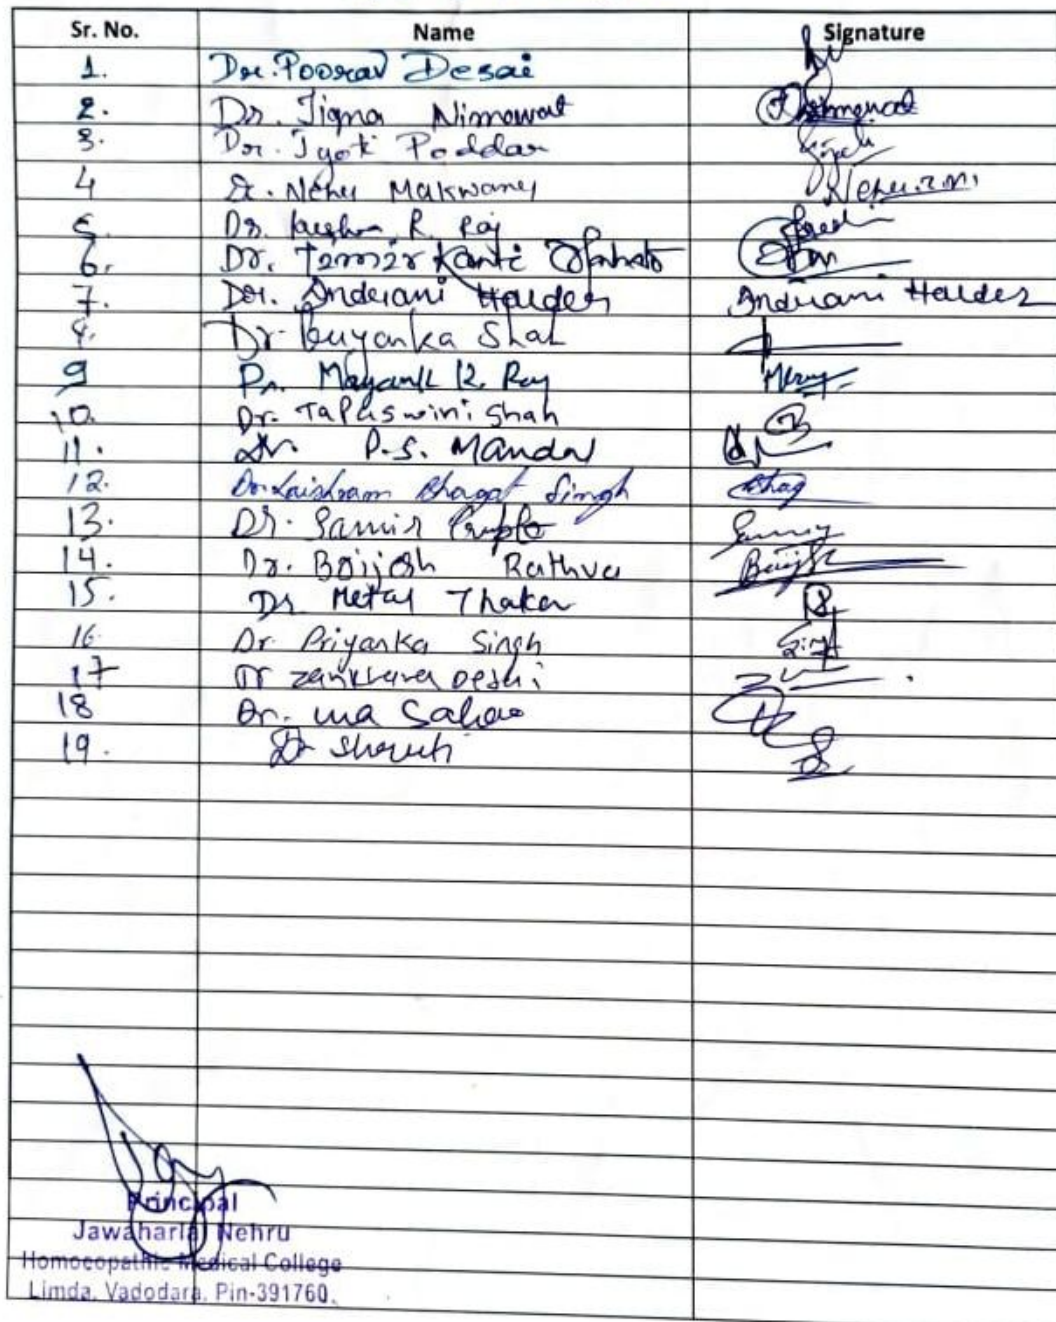 Sr. No. Name Signature
1. Dr. Poorav Desai
2. Dr. Jigna Nimawat
3. Dr. Jyoti Poddar
4 Dr. Nehu Makwana Nehu.r.m
5. Dr. R. Raj
6. Dr. Kanti
7. Dr. Inderani Halder Inderani Halder
8. Dr. Priyanka Shah
9 Dr. Mayank R. Roy
10. Dr. Tapaswini Shah
11. Dr. P.S. Mandal
12. Dr. Laishram Bhagat Singh Bhag
13. Dr. Samir Gupta
14. Dr. Brijesh Rathva Brijesh
15. Dr Hetal Thaker
16. Dr. Priyanka Singh
17 Dr Zankhana Desai
18 Dr. Uma Sahoo
19. Dr Shruti
Principal
Jawaharlal Nehru
Homoeopathic Medical College
Limda, Vadodara, Pin-391760.